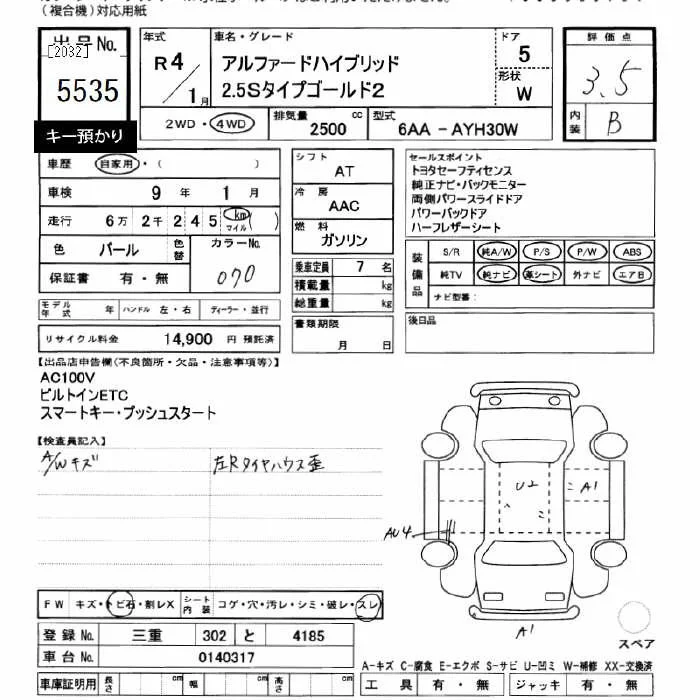 (複合機)対応用紙
出品No. 年式 車名・グレード ドア 評価点
[2032] R4 アルファードハイブリッド 5 3.5
5535 1月 2.5Sタイプゴールド2 形状 W
キー預かり 2WD・4WD 排気量 2500 cc 型式 6AA-AYH30W 内装 B
車歴 自家用・( ) シフト AT セールスポイント
車検 9年 1月 冷房 AAC トヨタセーフティセンス
走行 6万2千245 km マイル ( ) 純正ナビ・バックモニター
燃料 ガソリン 両側パワースライドドア
パワーバックドア
ハーフレザーシート
色 パール 色替 カラーNo. 070 乗車定員 7名
保証書 有・無 積載量 kg
総重量 kg
装備品 S/R 純A/W P/S P/W ABS
純TV 純ナビ 革シート 外ナビ エアB
ナビ型番:
モデル年式 年 ハンドル 左・右 ディーラー・並行 書類期限 月 日 後日品
リサイクル料金 14,900円 預託済
【出品店申告欄(不良箇所・欠品・注意事項等)】
AC100V
ビルトインETC
スマートキー・プッシュスタート
【検査員記入】
A/Wキズ 左Rタイヤハウス歪
U2 A1
AU4
A1
FW キズ・トビ石・割レX シート内装 コゲ・穴・汚レ・シミ・破レ・スレ
登録No. 三重 302 と 4185
車台No. 0140317
スペア
A-キズ C-腐食 E-エクボ S-サビ U-凹ミ W-補修 XX-交換済
車庫証明用 長さ cm 幅 cm 高さ cm 工具 有・無 ジャッキ 有・無